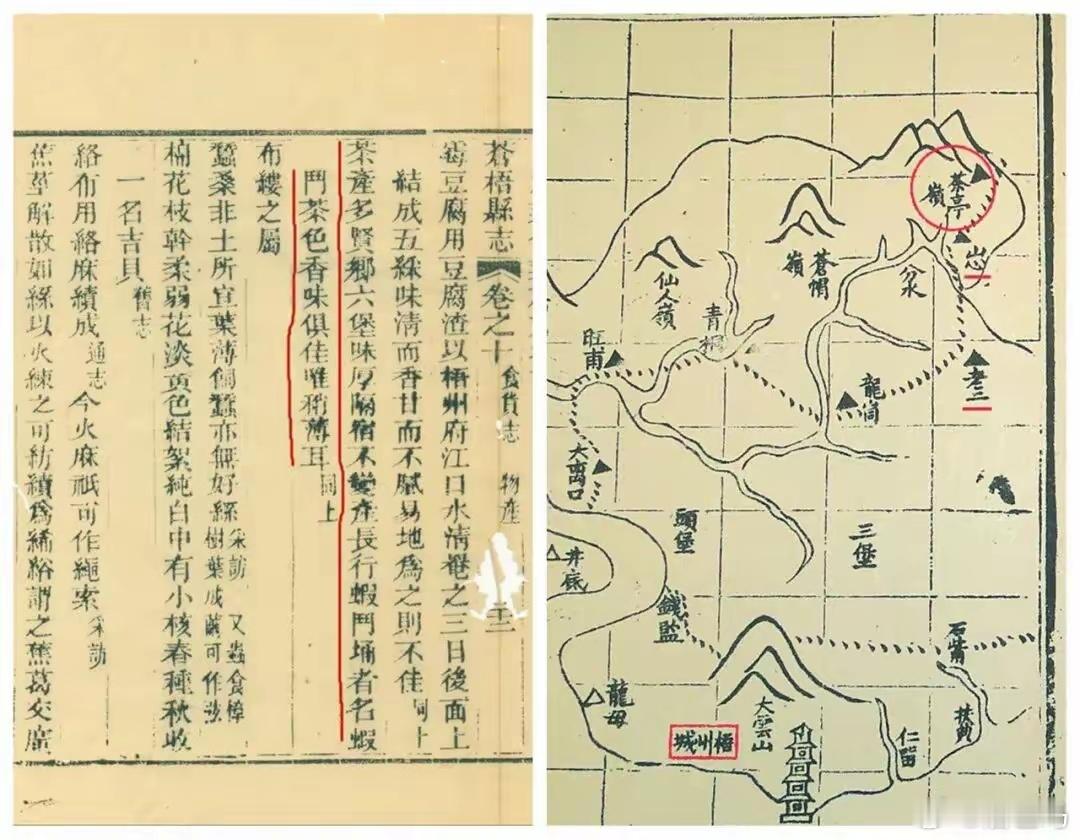 蒼梧縣志 卷之十 食貨志 物産 二十二
霉豆腐用豆腐渣以梧州府江口水清罨之三日後面上
結成五綵味清而香甘而不膩易地爲之則不佳 同上
茶産多賢鄉六堡味厚隔宿不變産長行蝦鬥埇者名蝦
鬥茶色香味俱佳唯稍薄耳 同上
布縷之屬
蠶桑非土所宜葉薄飼蠶亦無好絲 采訪 又蟲食樟樹葉成繭可作絲
棉花枝幹柔弱花淡黃色結絮純白中有小核春種秋收
一名吉貝 舊志
絡布用絡麻績成 通志 今火麻祇可作繩索 采訪
蕉莖解散如絲以火練之可紡績爲絺綌謂之蕉葛交廣
茶亭嶺
仙人嶺
蒼帽嶺
分水
青桐
旺甫
龍崗
老三
大离口
頭堡
三堡
井底
錢監
石觜
龍母
大雲山
梧州城
仁留
扶典